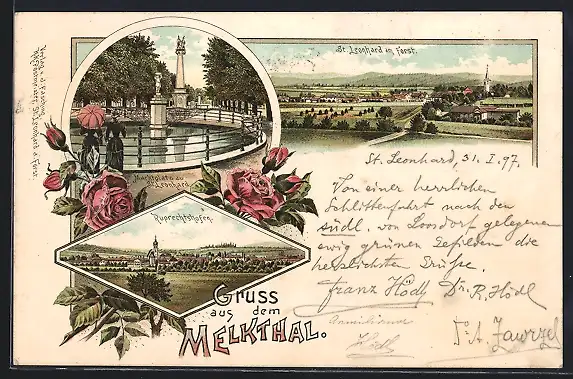 St. Leonhard im Forst.
Marktplatz zu
St. Leonhard.
Ruprechtshofen.
Gruss
aus dem
MELKTHAL.
St. Leonhard, 31. I. 97.
Von einer herrlichen
Schlittenfahrt nach den
südl. von Loosdorf gelegenen
ewig grünen Gefilden die
herzlichsten Grüße.
Franz Hödl Dr. R. Hödl
Hödl
Dr. A.